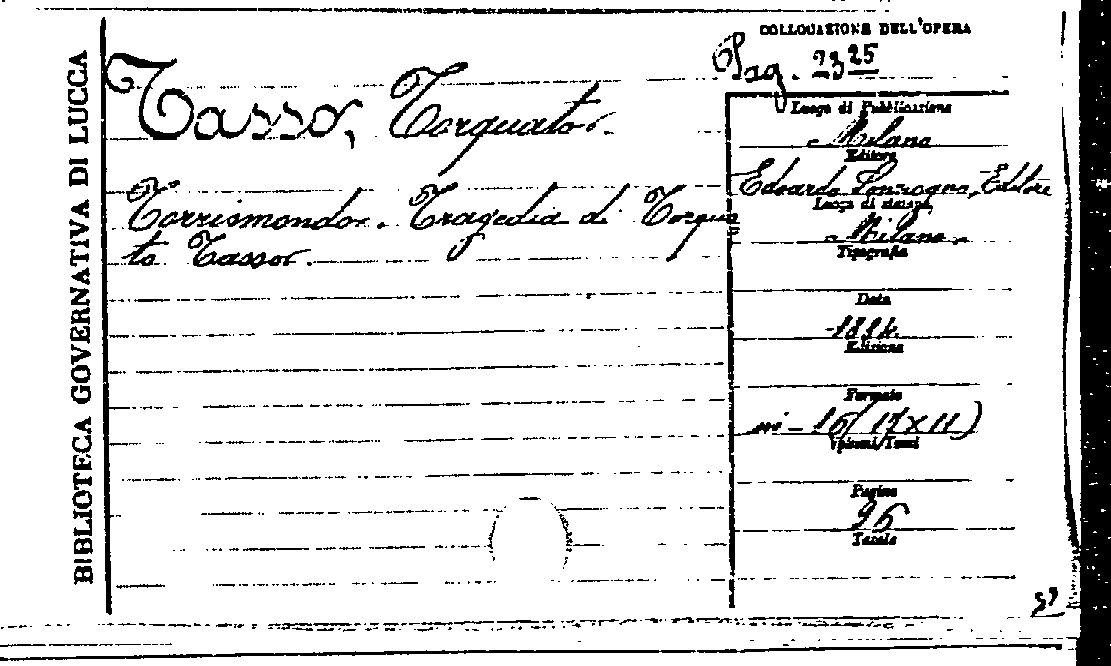 BIBLIOTECA GOVERNATIVA DI LUCCA
COLLOCAZIONE DELL'OPERA
Pag. 2325
Tasso, Torquato.
Torrismondo. Tragedia di Torqua
to Tasso.
Luogo di Pubblicazione
Milano
Editore
Edoardo Sonzogno, Editore
Luogo di stampa
Milano.
Tipografia
Data
Edizione
Formato
in-16 (17x11)
Volumi/Tomi
Pagine
96
Tavole